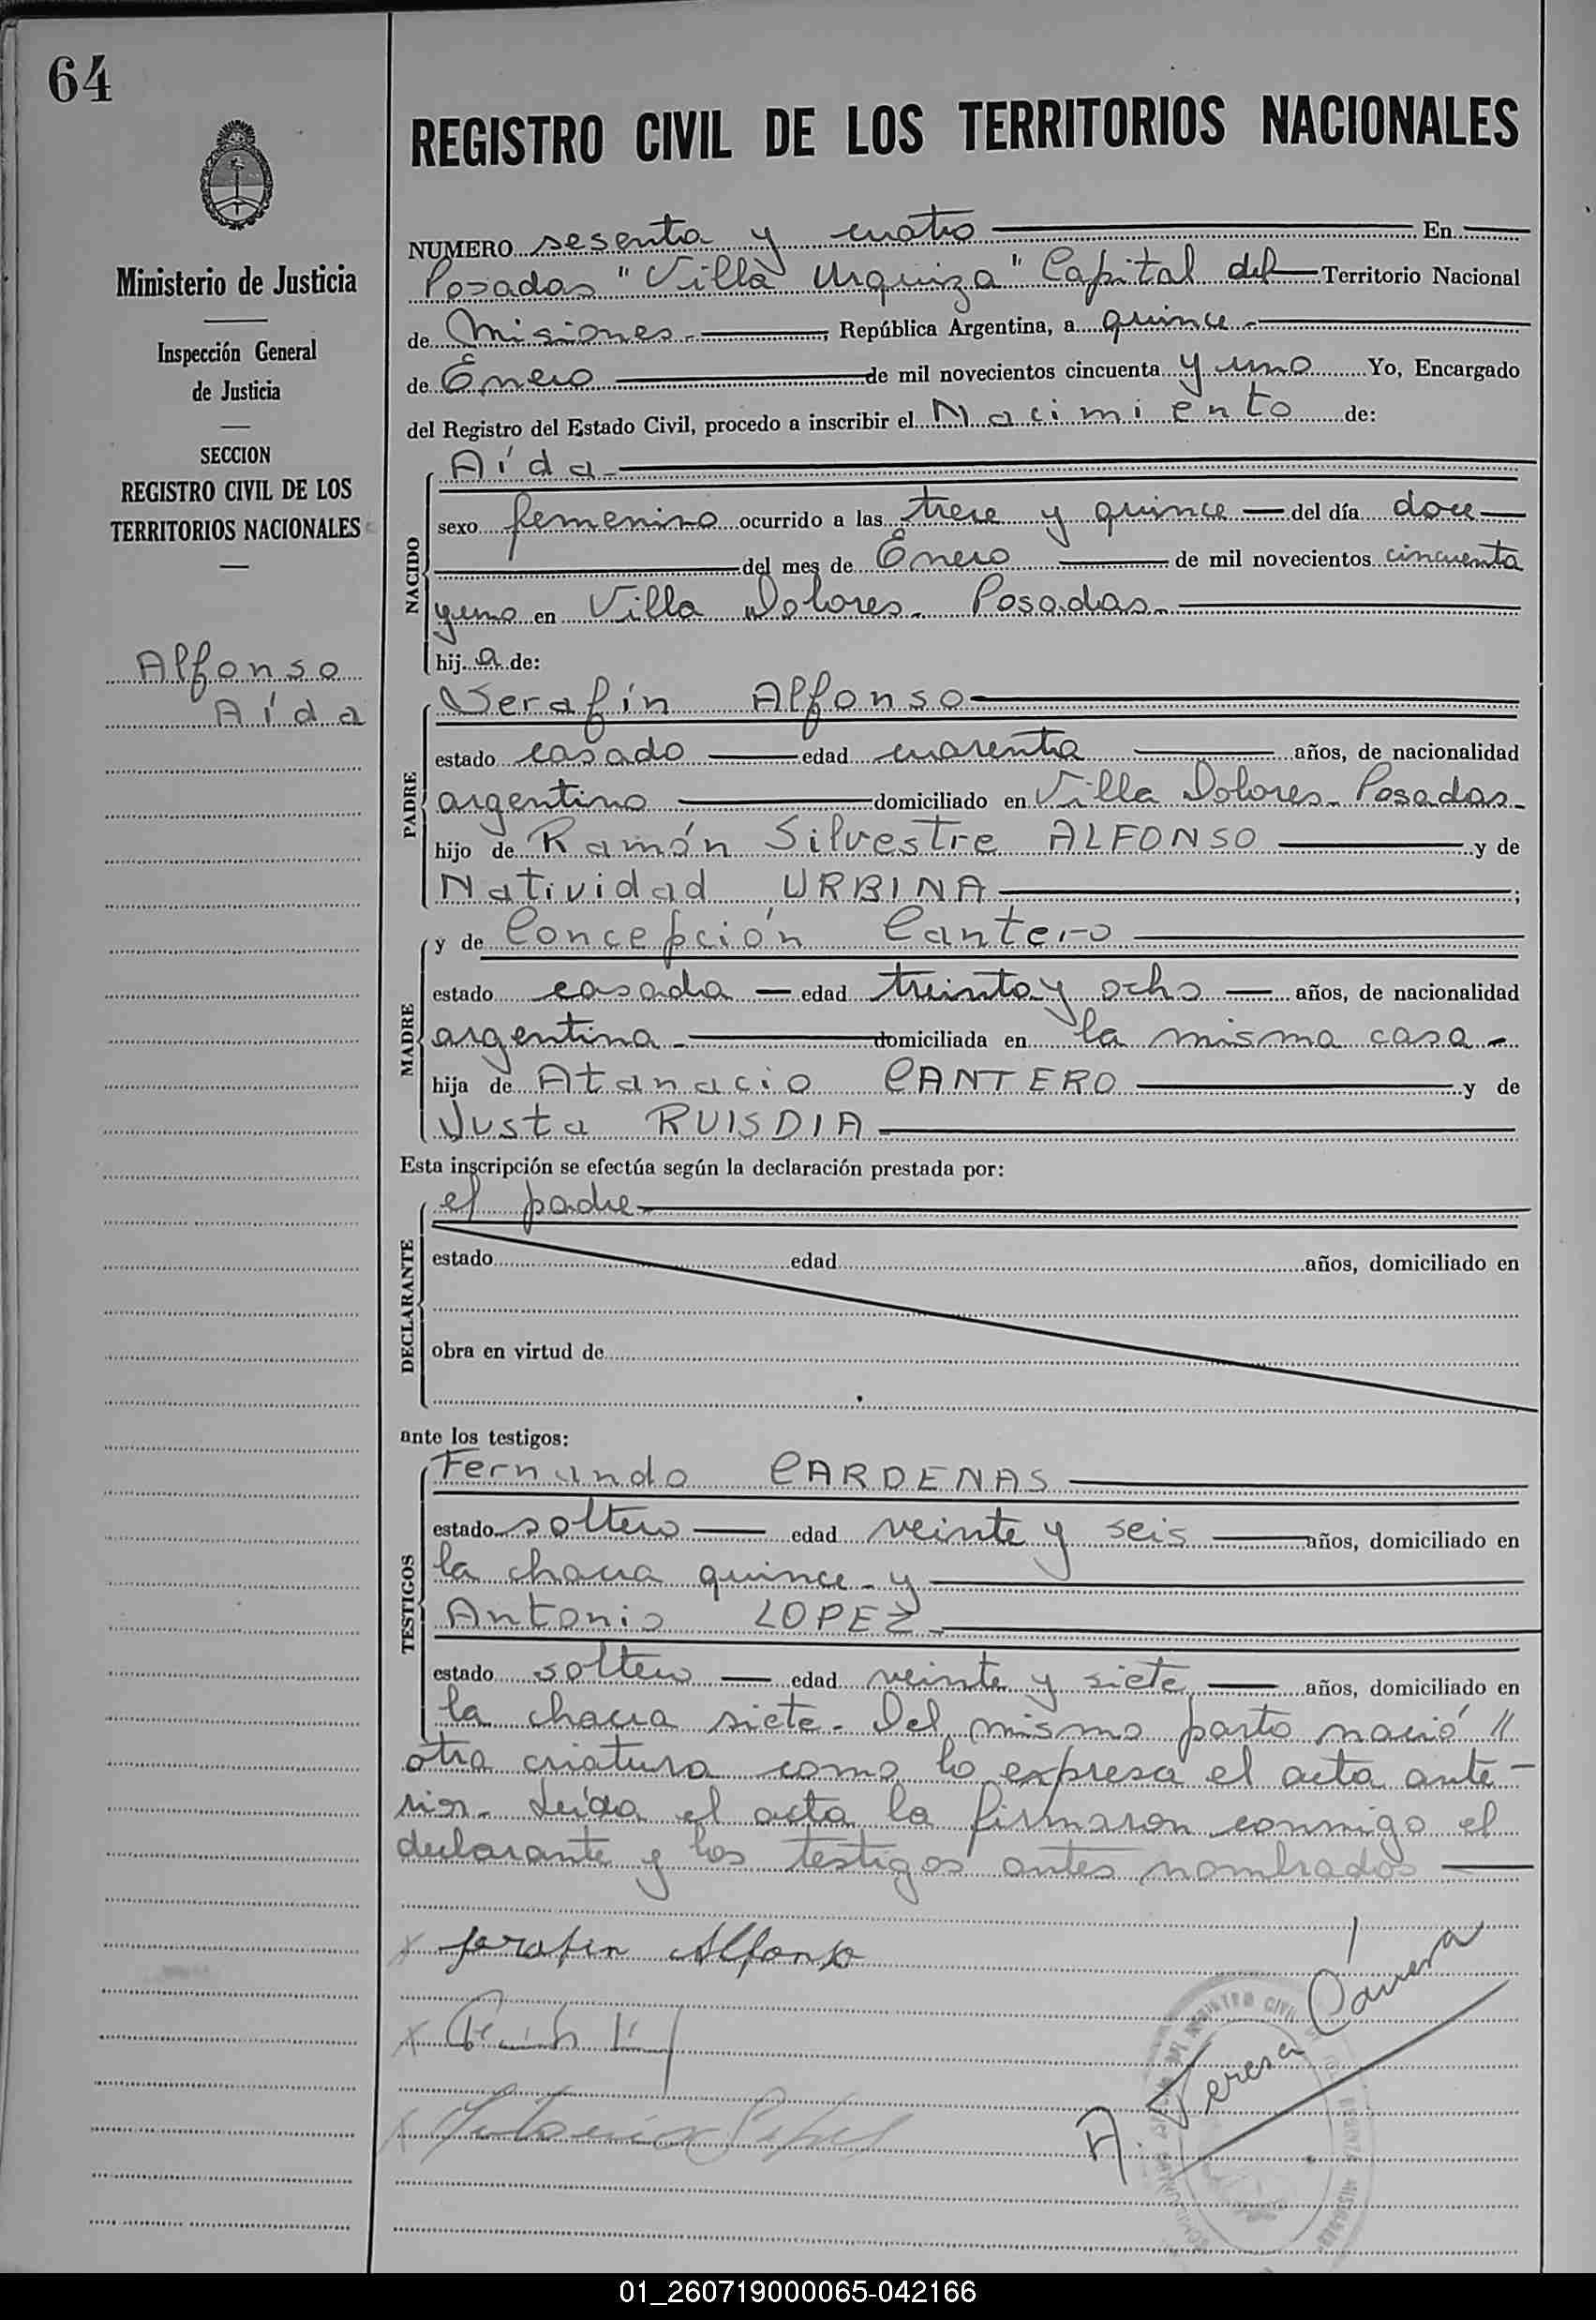 64
Ministerio de Justicia
Inspección General
de Justicia
SECCION
REGISTRO CIVIL DE LOS
TERRITORIOS NACIONALES
Alfonso
Aída
REGISTRO CIVIL DE LOS TERRITORIOS NACIONALES
NUMERO sesenta y cuatro En
Posadas "Villa Urquiza" Capital del Territorio Nacional
de Misiones.- , República Argentina, a quince.-
de Enero de mil novecientos cincuenta y uno Yo, Encargado
del Registro del Estado Civil, procedo a inscribir el Nacimiento de:
NACIDO
Aída.-
sexo femenino ocurrido a las trece y quince - del día doce
del mes de Enero de mil novecientos cincuenta
y uno en Villa Dolores. Posadas.-
hij a de:
PADRE
Serafín Alfonso
estado casado edad cuarenta años, de nacionalidad
argentino domiciliado en Villa Dolores. Posadas.-
hijo de Ramón Silvestre ALFONSO y de
Natividad URBINA ;
MADRE
y de Concepción Cantero
estado casada - edad treinta y ocho - años, de nacionalidad
argentina.- domiciliada en la misma casa.-
hija de Atanacio CANTERO y de
Justa RUISDIA
Esta inscripción se efectúa según la declaración prestada por:
DECLARANTE
el padre
estado edad años, domiciliado en
obra en virtud de
ante los testigos:
TESTIGOS
Fernando CARDENAS
estado soltero - edad veinte y seis años, domiciliado en
la chacra quince.- y
Antonio LOPEZ.-
estado soltero - edad veinte y siete, - años, domiciliado en
la chacra siete.- Del mismo parto nació //
otra criatura como lo expresa el acta ante-
rior.- Leída el acta la firmaron conmigo el
declarante y los testigos antes nombrados
x Serafin Alfonso
x
x
A. Teresa Carrera
REGISTRO CIVIL
01_260719000065-042166